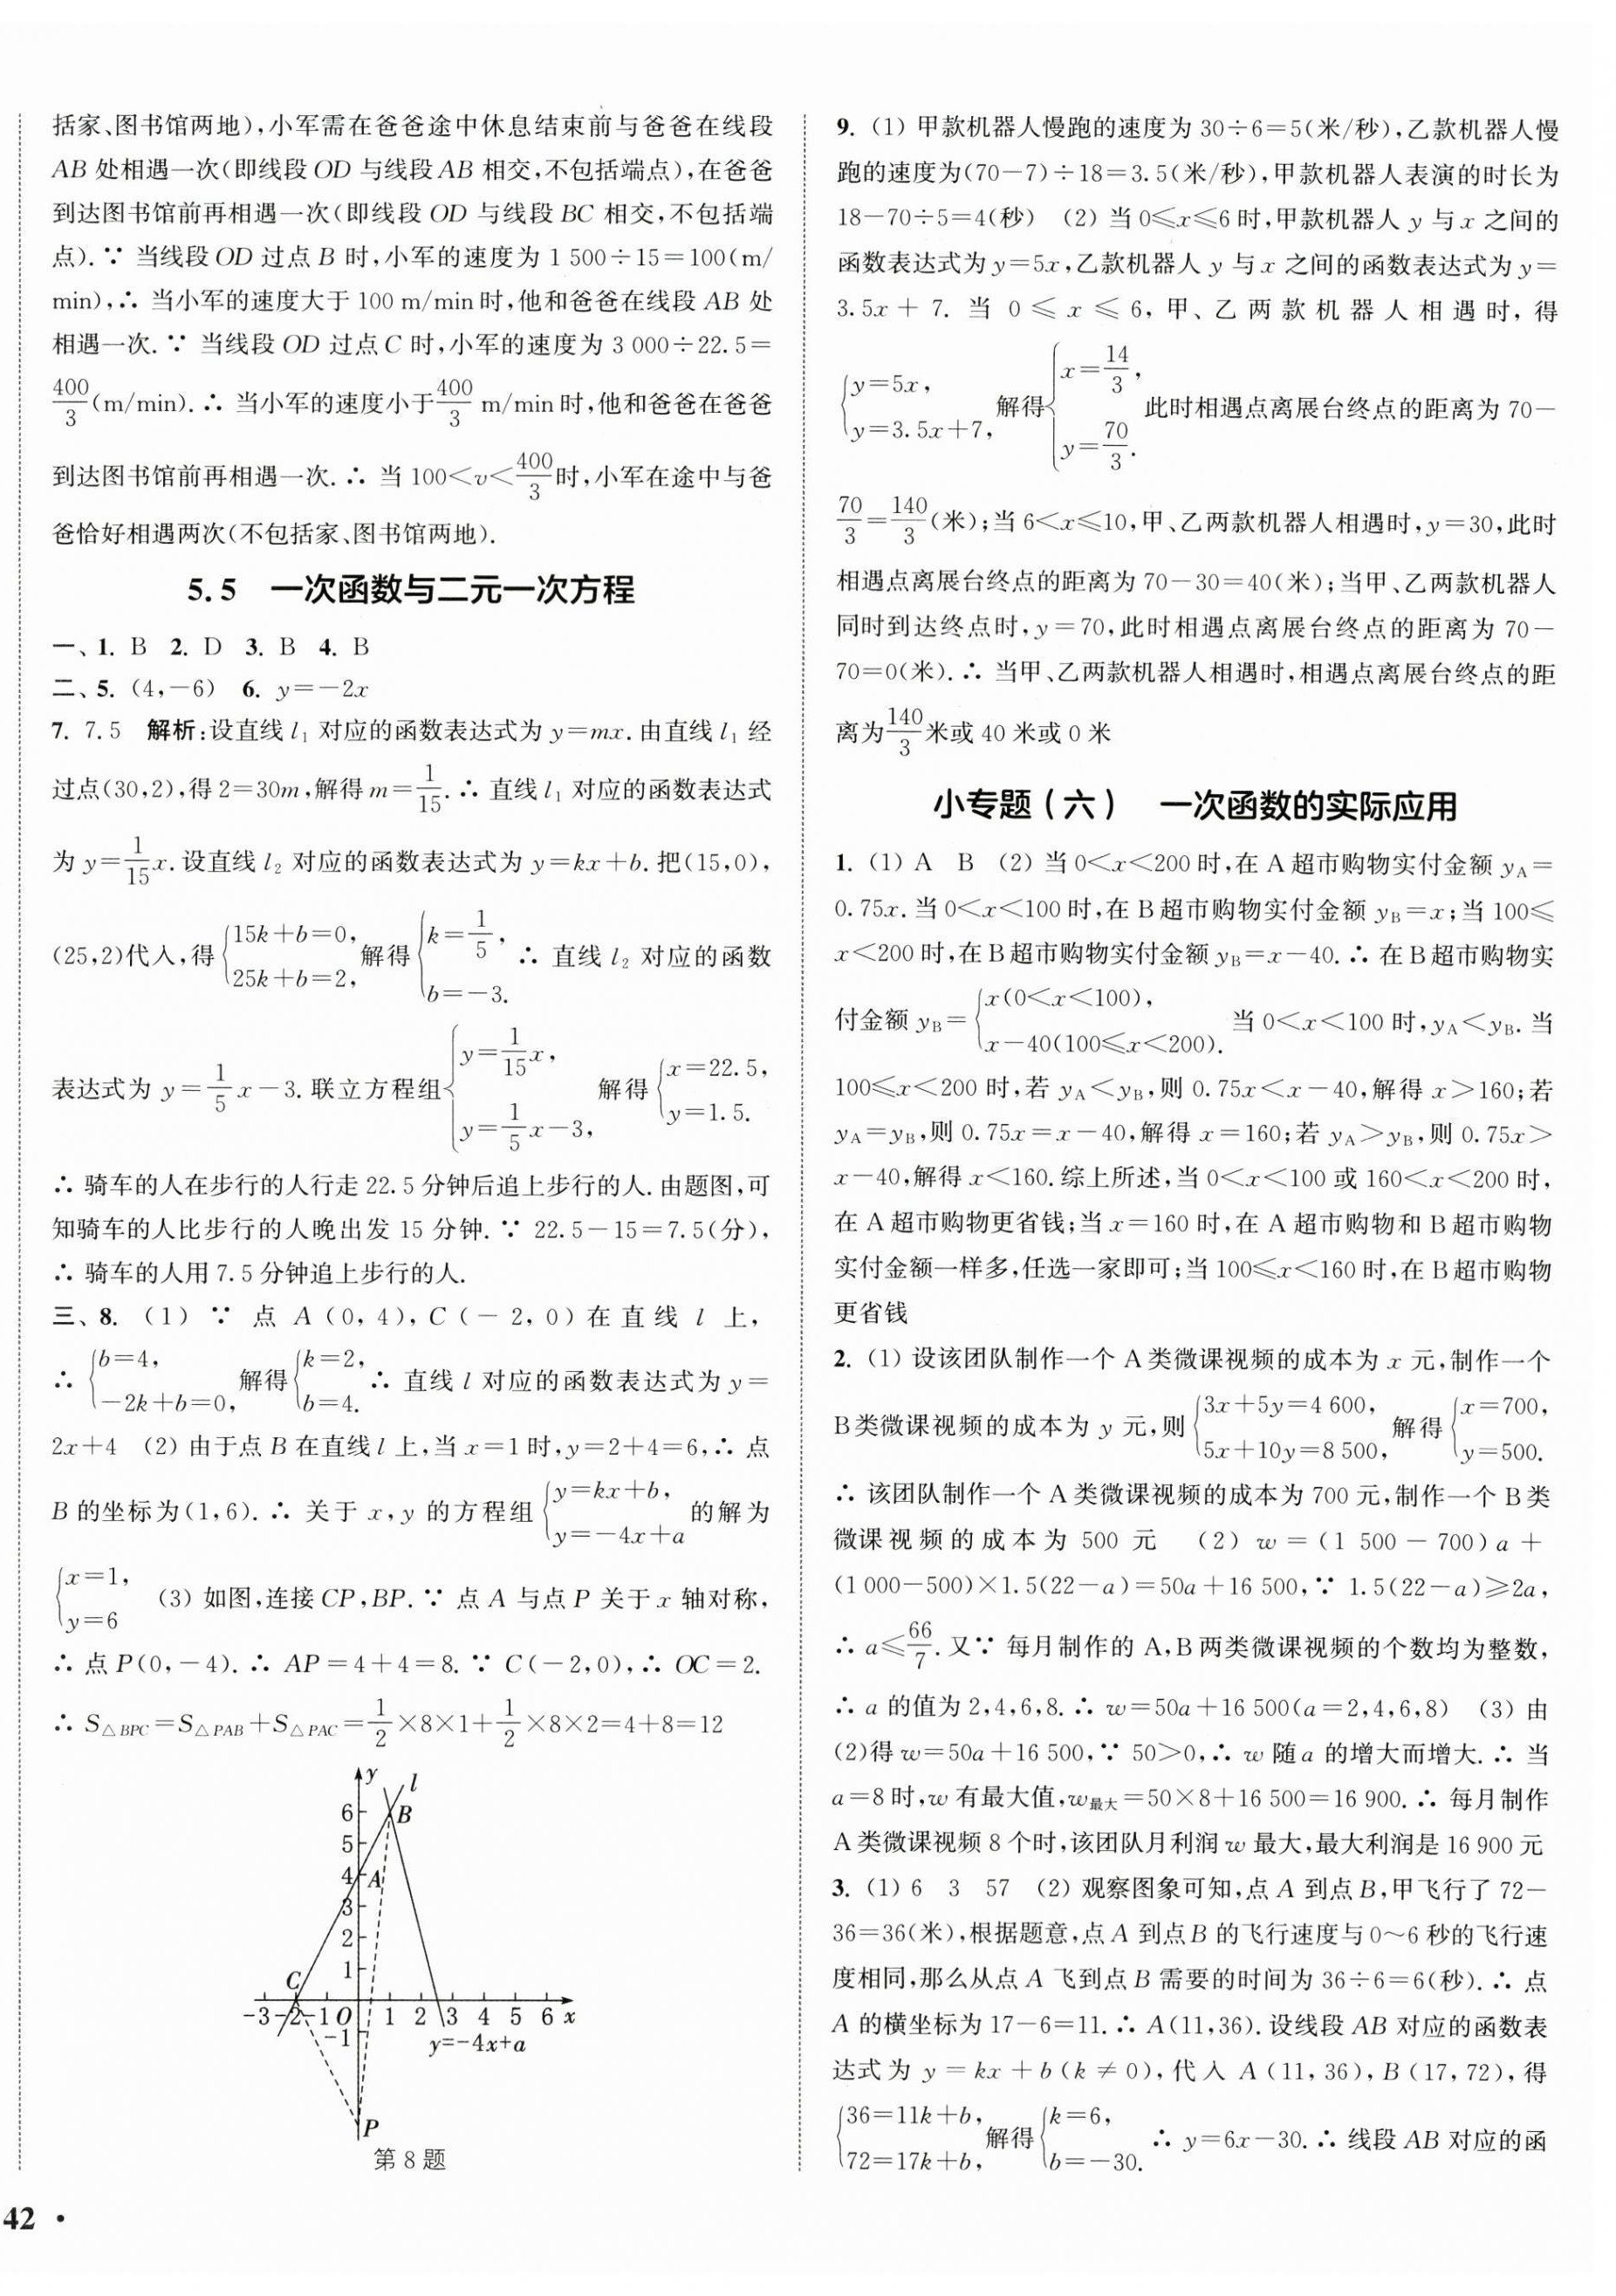 括家、图书馆两地),小军需在爸爸途中休息结束前与爸爸在线段
AB 处相遇一次(即线段 OD 与线段 AB 相交,不包括端点),在爸爸
到达图书馆前再相遇一次(即线段 OD 与线段 BC 相交,不包括端
点). ∵ 当线段 OD 过点 B 时,小军的速度为 1 500÷15=100(m/
min),∴ 当小军的速度大于 100 m/min 时,他和爸爸在线段 AB 处
相遇一次. ∵ 当线段 OD 过点 C 时,小军的速度为 3 000÷22.5=
400/3(m/min). ∴ 当小军的速度小于400/3 m/min 时,他和爸爸在爸爸
到达图书馆前再相遇一次. ∴ 当 100<v<400/3时,小军在途中与爸
爸恰好相遇两次(不包括家、图书馆两地).
5.5 一次函数与二元一次方程
一、1. B 2. D 3. B 4. B
二、5. (4,-6) 6. y=-2x
7. 7.5 解析:设直线 l₁ 对应的函数表达式为 y=mx. 由直线 l₁ 经
过点(30,2),得 2=30m,解得 m=1/15. ∴ 直线 l₁ 对应的函数表达式
为 y=1/15x. 设直线 l₂ 对应的函数表达式为 y=kx+b. 把(15,0),
(25,2)代入,得{15k+b=0, 25k+b=2, 解得{k=1/5, b=-3. ∴ 直线 l₂ 对应的函数
表达式为 y=1/5x-3. 联立方程组{y=1/15x, y=1/5x-3, 解得{x=22.5, y=1.5.
∴ 骑车的人在步行的人行走 22.5 分钟后追上步行的人. 由题图,可
知骑车的人比步行的人晚出发 15 分钟. ∵ 22.5-15=7.5(分),
∴ 骑车的人用 7.5 分钟追上步行的人.
三、8. (1) ∵ 点 A(0,4),C(-2,0)在直线 l 上,
∴ {b=4, -2k+b=0, 解得{k=2, b=4. ∴ 直线 l 对应的函数表达式为 y=
2x+4 (2) 由于点 B 在直线 l 上,当 x=1 时,y=2+4=6,∴ 点
B 的坐标为(1,6). ∴ 关于 x,y 的方程组{y=kx+b, y=-4x+a 的解为
{x=1, y=6 (3) 如图,连接 CP,BP. ∵ 点 A 与点 P 关于 x 轴对称,
∴ 点 P(0,-4). ∴ AP=4+4=8. ∵ C(-2,0),∴ OC=2.
∴ S△BPC=S△PAB+S△PAC=1/2×8×1+1/2×8×2=4+8=12
y
l
6
B
5
4
A
3
2
1
C
-3 -2 -1 O 1 2 3 4 5 6 x
-1
y=-4x+a
P
第 8 题
42 •
9. (1) 甲款机器人慢跑的速度为 30÷6=5(米/秒),乙款机器人慢
跑的速度为(70-7)÷18=3.5(米/秒),甲款机器人表演的时长为
18-70÷5=4(秒) (2) 当 0≤x≤6 时,甲款机器人 y 与 x 之间的
函数表达式为 y=5x,乙款机器人 y 与 x 之间的函数表达式为 y=
3.5x+7. 当 0≤x≤6,甲、乙两款机器人相遇时,得
{y=5x, y=3.5x+7, 解得{x=14/3, y=70/3. 此时相遇点离展台终点的距离为 70-
70/3=140/3(米);当 6<x≤10,甲、乙两款机器人相遇时,y=30,此时
相遇点离展台终点的距离为 70-30=40(米);当甲、乙两款机器人
同时到达终点时,y=70,此时相遇点离展台终点的距离为 70-
70=0(米). ∴ 当甲、乙两款机器人相遇时,相遇点离展台终点的距
离为140/3米或 40 米或 0 米
小专题(六) 一次函数的实际应用
1. (1) A B (2) 当 0<x<200 时,在 A 超市购物实付金额 yA=
0.75x. 当 0<x<100 时,在 B 超市购物实付金额 yB=x;当 100≤
x<200 时,在 B 超市购物实付金额 yB=x-40. ∴ 在 B 超市购物实
付金额 yB={x(0<x<100), x-40(100≤x<200). 当 0<x<100 时,yA<yB. 当
100≤x<200 时,若 yA<yB,则 0.75x<x-40,解得 x>160;若
yA=yB,则 0.75x=x-40,解得 x=160;若 yA>yB,则 0.75x>
x-40,解得 x<160. 综上所述,当 0<x<100 或 160<x<200 时,
在 A 超市购物更省钱;当 x=160 时,在 A 超市购物和 B 超市购物
实付金额一样多,任选一家即可;当 100≤x<160 时,在 B 超市购物
更省钱
2. (1) 设该团队制作一个 A 类微课视频的成本为 x 元,制作一个
B类微课视频的成本为 y 元,则{3x+5y=4 600, 5x+10y=8 500, 解得{x=700, y=500.
∴ 该团队制作一个 A 类微课视频的成本为 700 元,制作一个 B 类
微课视频的成本为 500 元 (2) w=(1 500-700)a+
(1 000-500)×1.5(22-a)=50a+16 500,∵ 1.5(22-a)≥2a,
∴ a≤66/7. 又∵ 每月制作的 A,B 两类微课视频的个数均为整数,
∴ a 的值为 2,4,6,8. ∴ w=50a+16 500(a=2,4,6,8) (3) 由
(2)得 w=50a+16 500,∵ 50>0,∴ w 随 a 的增大而增大. ∴ 当
a=8 时,w 有最大值,w最大=50×8+16 500=16 900. ∴ 每月制作
A 类微课视频 8 个时,该团队月利润 w 最大,最大利润是 16 900 元
3. (1) 6 3 57 (2) 观察图象可知,点 A 到点 B,甲飞行了 72-
36=36(米),根据题意,点 A 到点 B 的飞行速度与 0~6 秒的飞行速
度相同,那么从点 A 飞到点 B 需要的时间为 36÷6=6(秒). ∴ 点
A 的横坐标为 17-6=11. ∴ A(11,36). 设线段 AB 对应的函数表
达式为 y=kx+b(k≠0),代入 A(11,36),B(17,72),得
{36=11k+b, 72=17k+b, 解得{k=6, b=-30. ∴ y=6x-30. ∴ 线段 AB 对应的函